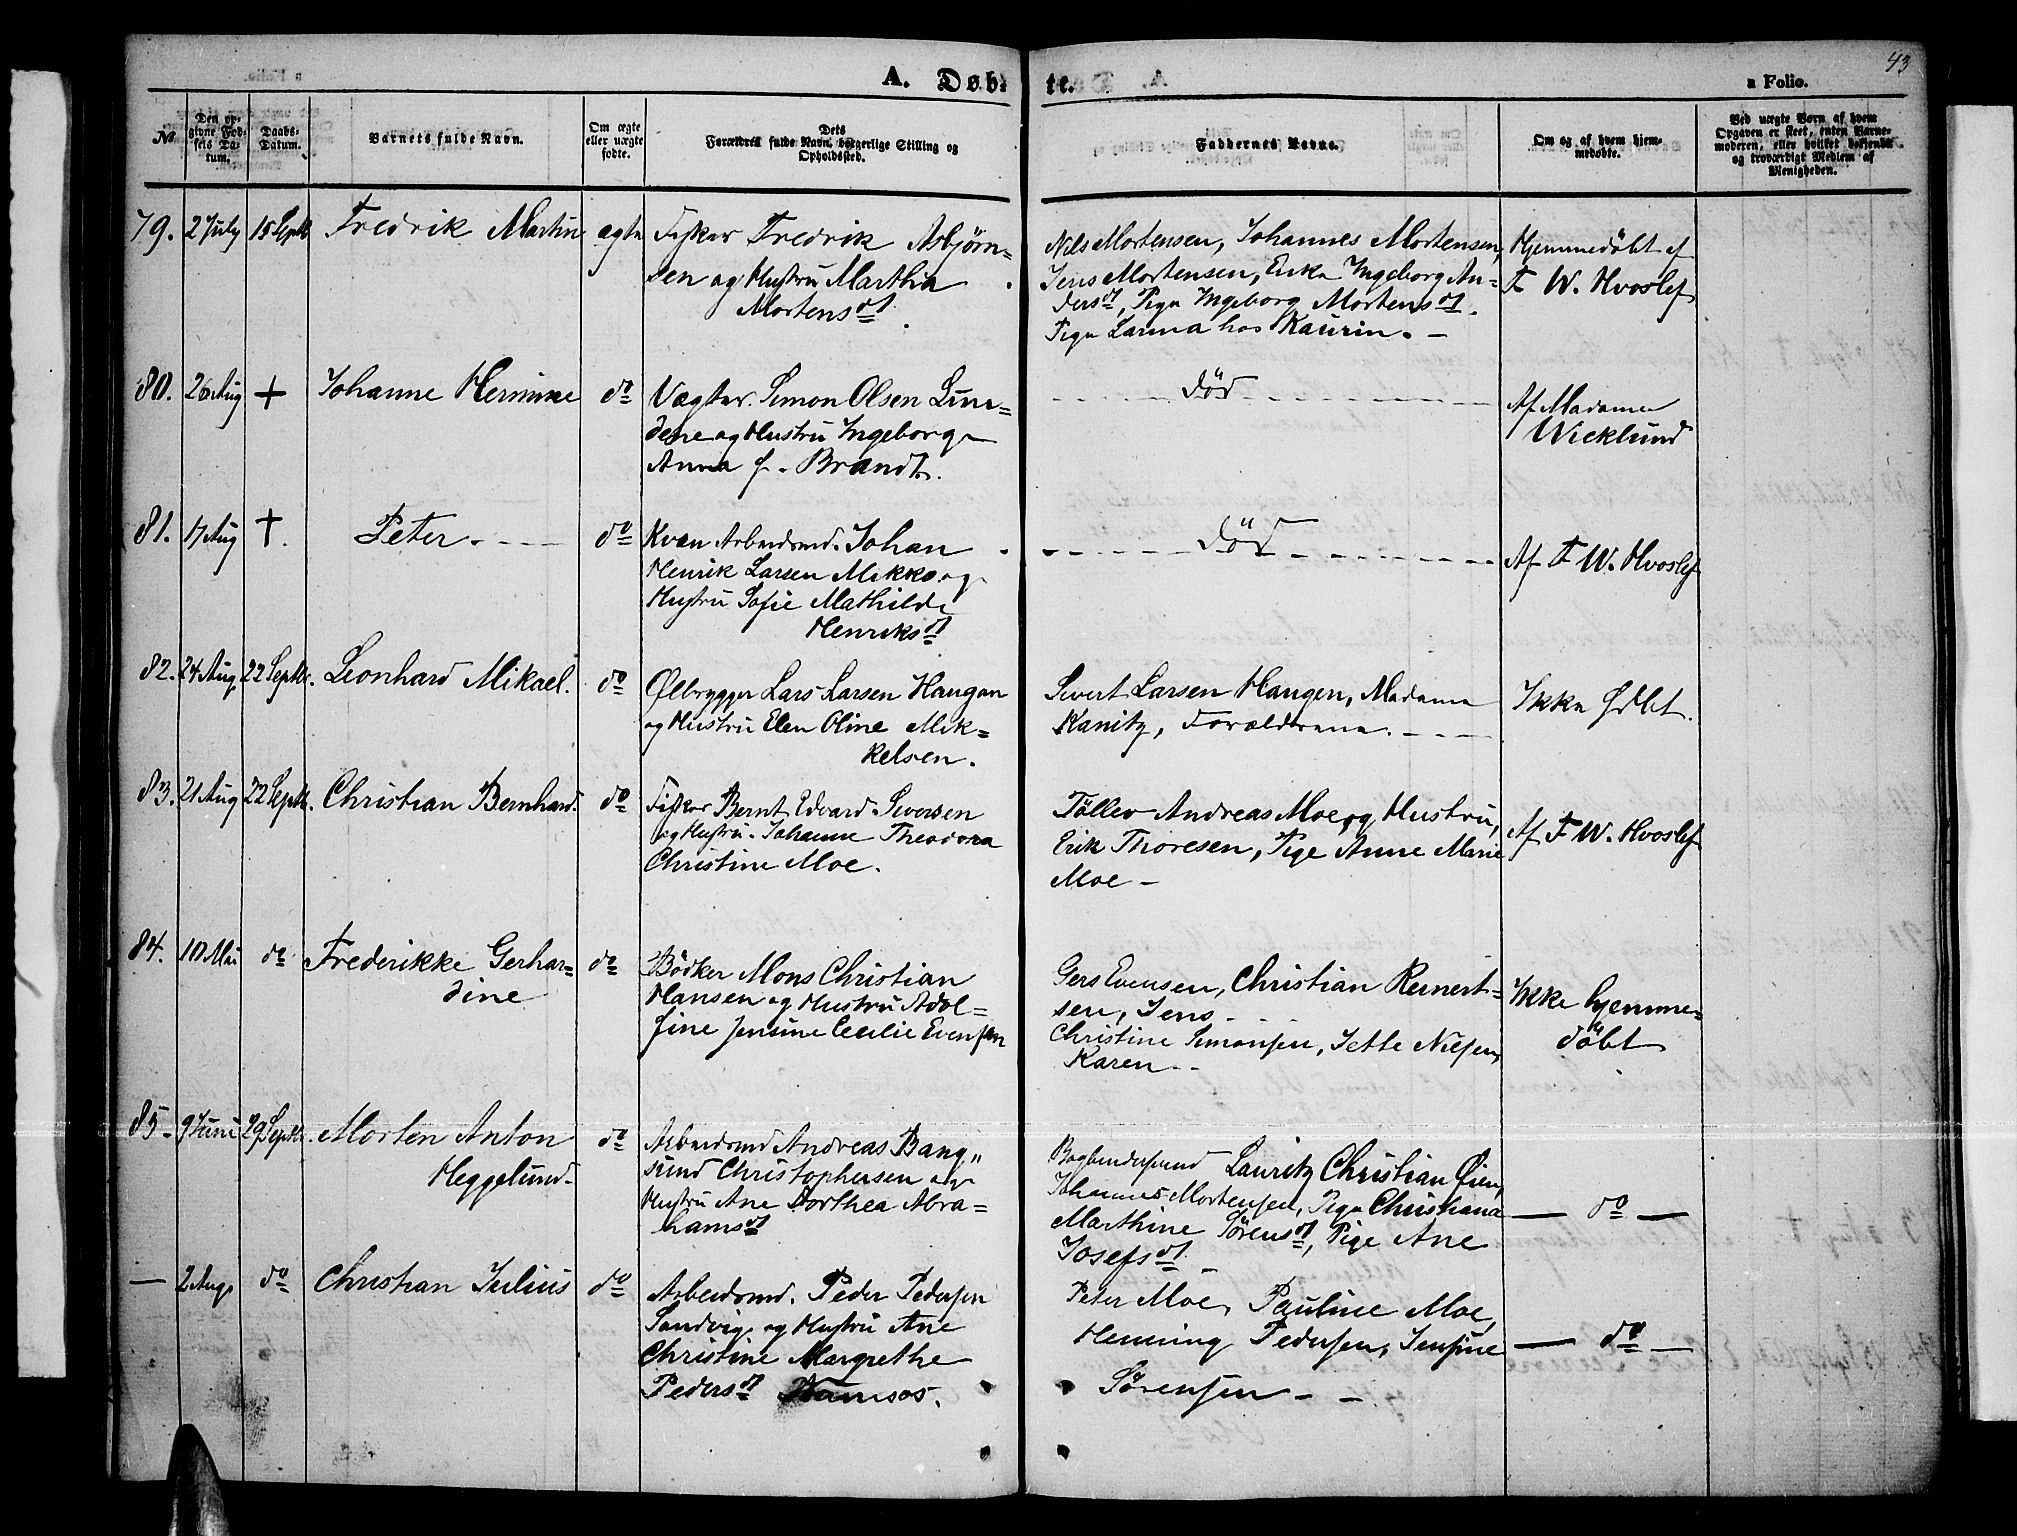 43
A. Døb-
te.
a Folio.
No
Den op-
givne Fød-
sels Da-
tum.
Daabs-
Datum.
Barnets fulde Navn.
Om ægte
eller uægte
fødte.
Dets
Forældres fulde Navn, borgerlige Stilling og
Opholdssted.
Faddernes Navne.
Om og af hvem hjem-
medøbte.
Ved uægte Børn af hvem
Opgaven er skeet, enten Barne-
moderen, eller hvilket bekjendt
og troværdigt Medlem af
Menigheden.
79. 2 July 15 Septb Fredrik Martin ægte
Fisker Fredrik Asbjørn=
sen og Hustru Marthia
Mortens dt.
Nils Mortensen, Johannes Mortensen,
Jens Mortensen, Enke Ingeborg An=
ders dt, Pige Ingeborg Mortens dt.
Pige Larina hos Kaurin. -
Hjemmedöbt af
F W. Hvoslef
80. 26 Aug + Johanne Hermine do
Vægter Simon Olsen Lun=
dene og Hustru Ingeborg
Anna f. Brandt.
död
Af Madame
Wicklund
81. 17 Aug +. Peter. do
Kvæn Arbeidsmd. Johan
Henrik Larsen Mikko og
Hustru Sofie Mathilde
Henriks dt
död
Af F W. Hvoslef
82. 24 Aug. 22 Septbr. Leonhard Mikael. do
Ølbrygger Lars Larsen Haugan
og Hustru Elen Oline Mik=
kelsen.
Sivert Larsen Haugen, Madame
Kanitz, Forældrene.
Ikke Ødbt.
83. 21 Aug 22 Septb. Christian Bernhard. do
Fisker Bernt Edvard Siversen
og Hustru Johanne Theodora
Christine Moe.
Töllev Andreas Moe og Hustru,
Erik Thoresen, Pige Anne Marie
Moe -
Af F W. Hvoslef
84. 10 Mai do Frederikke Gerhar=
dine
do
Bödker Mons Christian
Hansen og Hustru Adol=
fine Jensine Cecilie Evensen
Gers Evensen, Christian Reinert=
sen, Jens
Christine Simonsen, Jette Nilsen,
Karen -
Ikke hjemme=
döbt
85. 9 Juni 29 Septbr. Morten Anton
Heggelund.
do
Arbeidsmd Andreas Bang"
sund Christophersen og
Hustru Ane Dorthea Abra=
hams dt
Bogbindersvend Lauritz Christian Øien,
Johannes Mortensen, Pige Christiana
Marthine Sörens dt, Pige Ane
Josefs dt.
— do —
— 2 Aug. do Christian Julius do
Arbeidsmd. Peder Pedersen
Sandvig og Hustru Ane
Christine Margrethe
Peders dt Namsos.
Peter Moe, Pauline Moe,
Henning Pedersen, Jensine
Sörensen - -
— do —